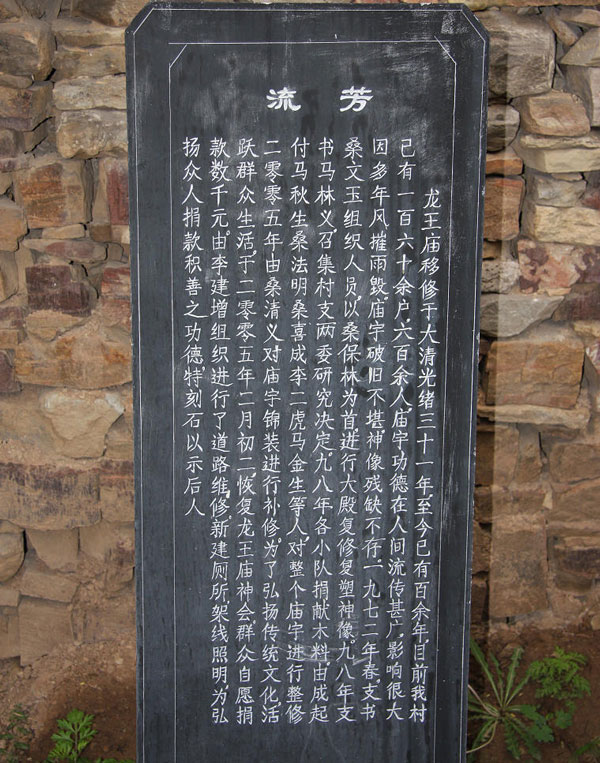 芳流
龙王庙移修于大清光绪三十一年,至今已有百余年,目前我村
己有一百六十余户,六百余人,庙宇功德在人间流传甚广,影响很大
因多年风摧雨毁,庙宇破旧不堪,神像残缺不存,一九七二年春,支书
桑文玉组织人员,以桑保林为首,进行大殿复修复塑神像。九八年支
书马林义召集村支两委研究决定。九八年各小队捐献木料,由成起
付马秋生桑法明桑喜成李二虎马金生等人,对整个庙宇进行整修
二零零五年由桑清义对庙宇锦装进行补修。为了弘扬传统文化活
跃群众生活,于二零零五年二月初二恢复龙王庙神会,群众自愿捐
款数千元。由李建增组织进行了道路维修,新建厕所架线照明,为弘
扬众人捐款积善之功德,特刻石以示后人